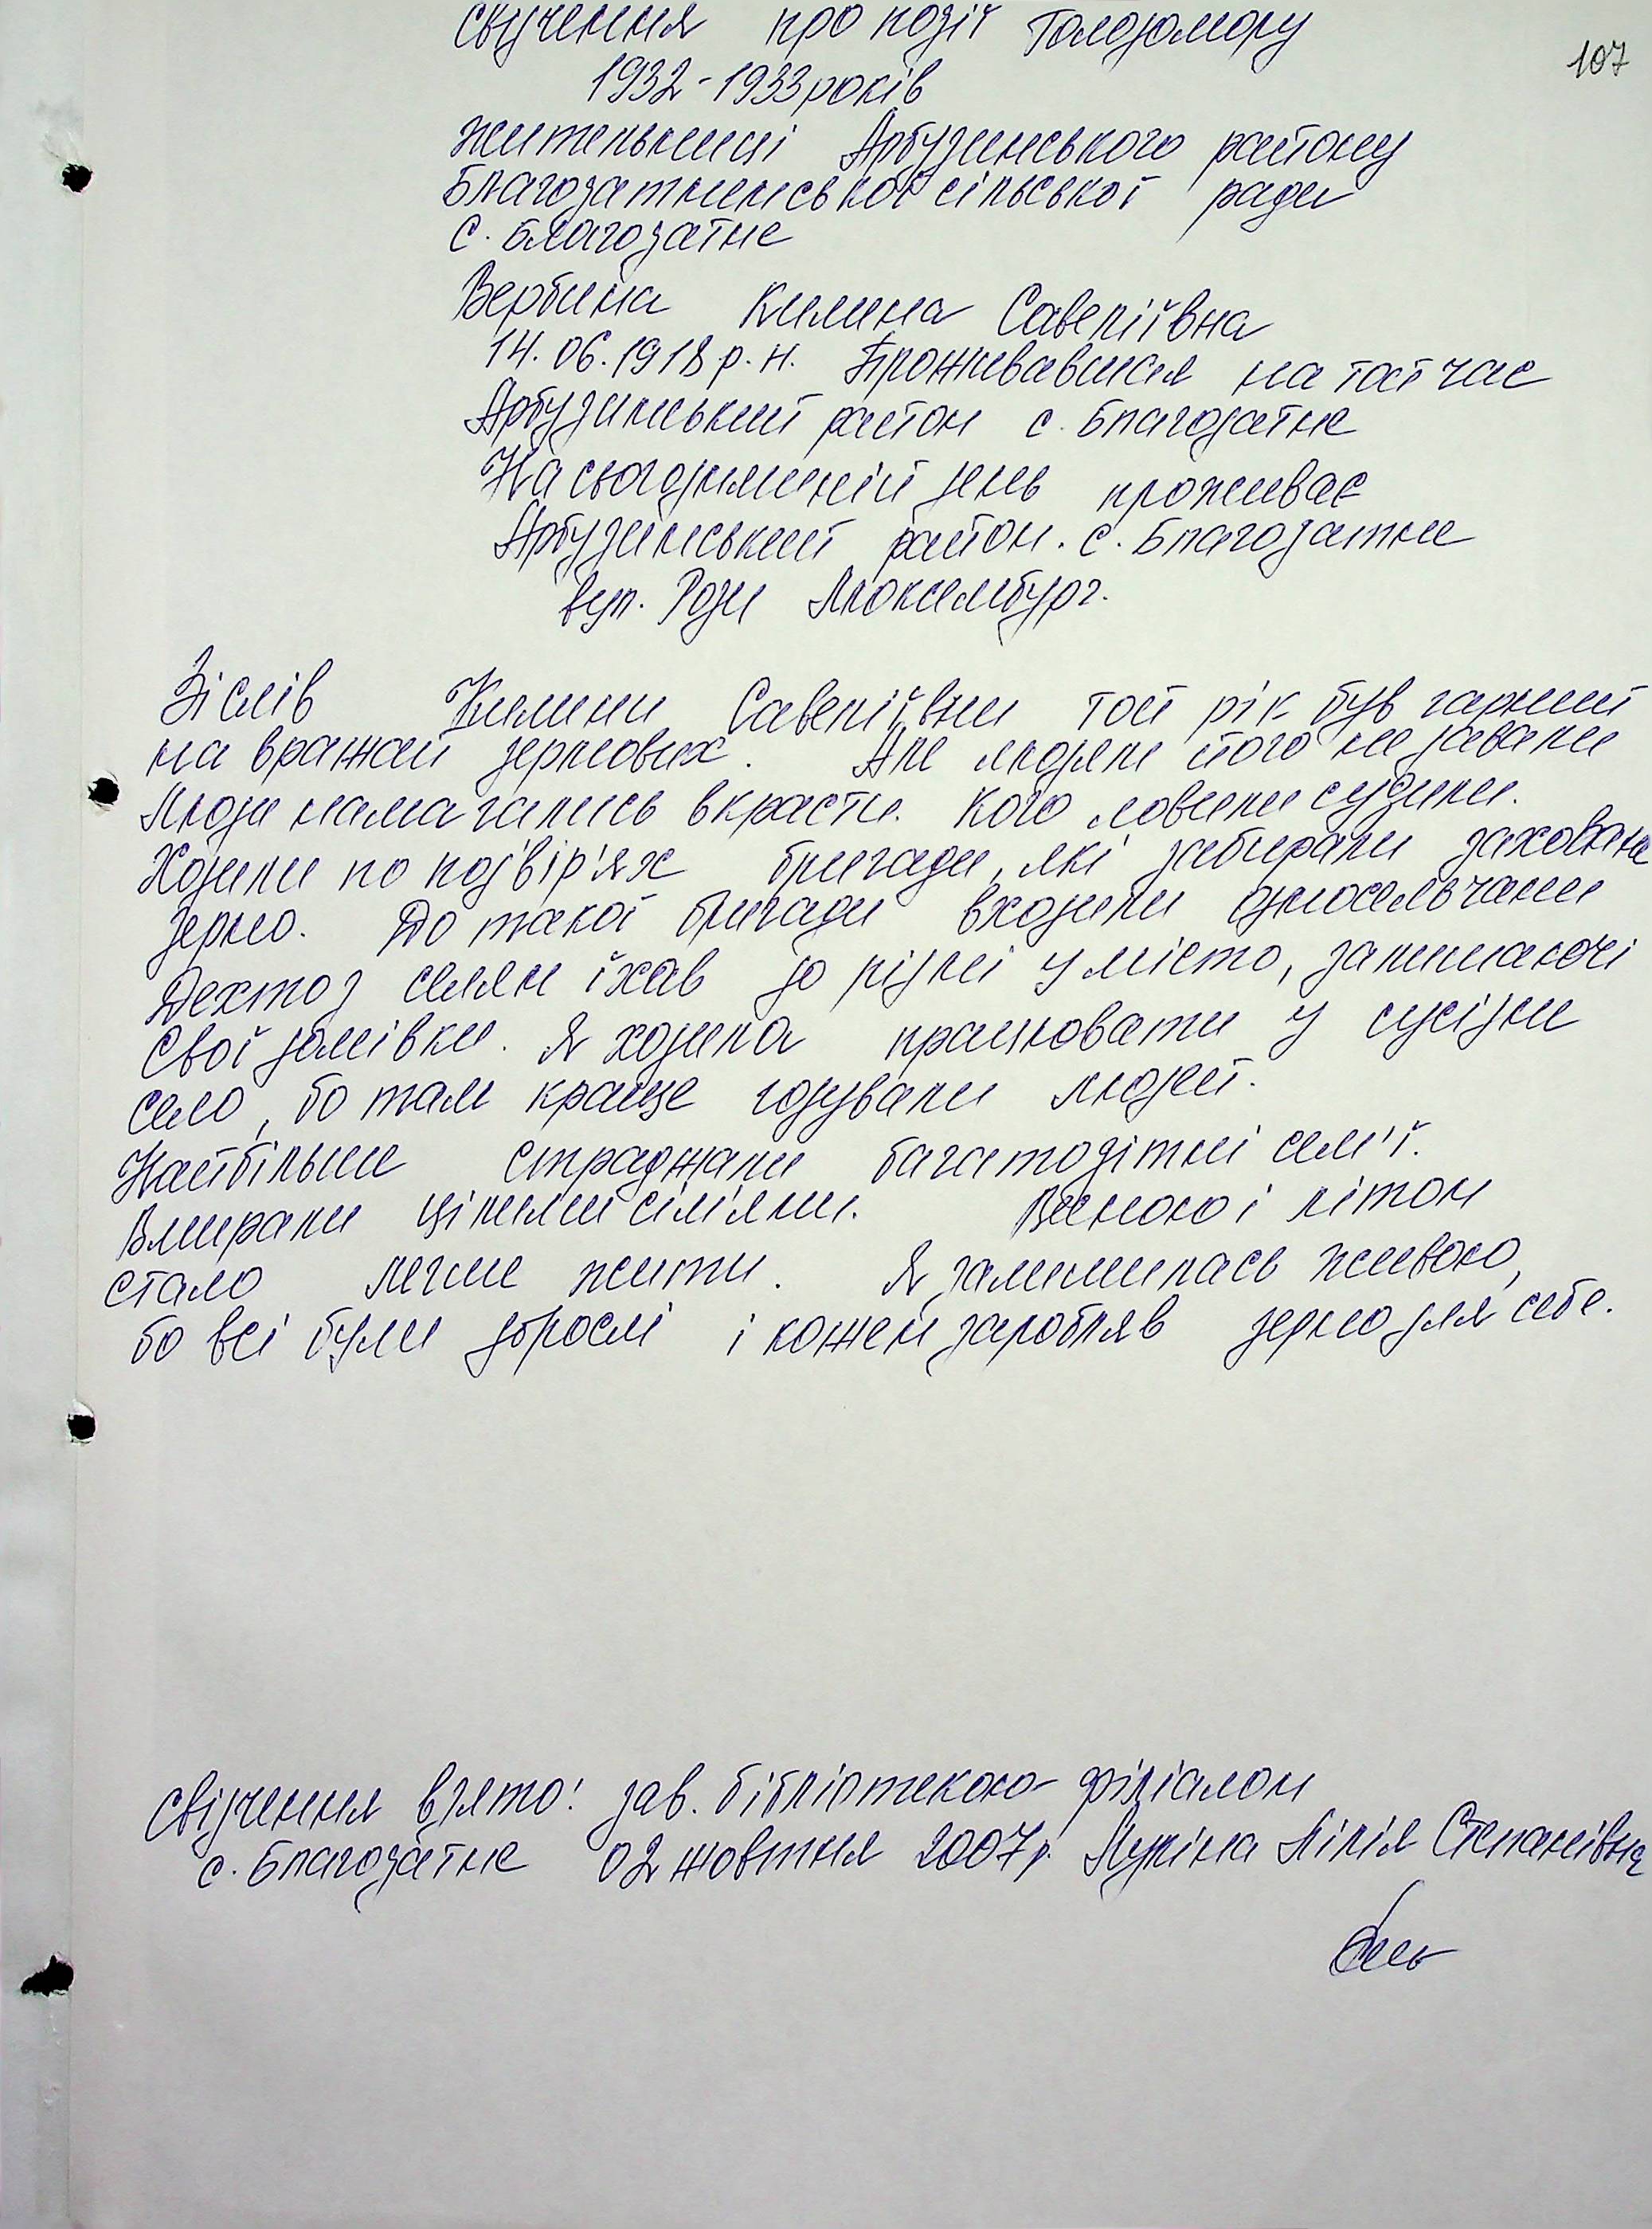 107
Свідчення про події Голодомору
1932-1933 років
жительниці Арбузинського району
Благодатненської сільської ради
с. Благодатне
Вербина Килина Савеліївна
14.06.1918 р.н. Проживавшая на той час
Арбузинський район с. Благодатне
На сьогоднішній день проживає
Арбузинський район. с. Благодатне
вул. Рози Люксембург.
Зі слів Килини Савеліївни той рік був гарний
на вражай зернових. Але людям його не давали
Люди намагались вкрасти. Кого ловили судили.
Ходили по подвір'ях бригади, які забирали заховане
зерно. До такої бригади входили односельчани
Дехто з селян їхав до рідні у місто, залишаючі
свої домівки. Я ходила працювати у сусідни
село, бо там краще годували людей.
Найбільше страджали багатодітні сем'ї.
Вмирали цілими сім'ями. Весною і літом
стало легше жити. Я залишилась живою,
бо всі були дорослі і кожен заробляв зерно для себе.
Свідчення взято: зав. бібліотекою-філіалом
с. Благодатне 02 жовтня 2007 р. Лукіна Лілія Степанівна